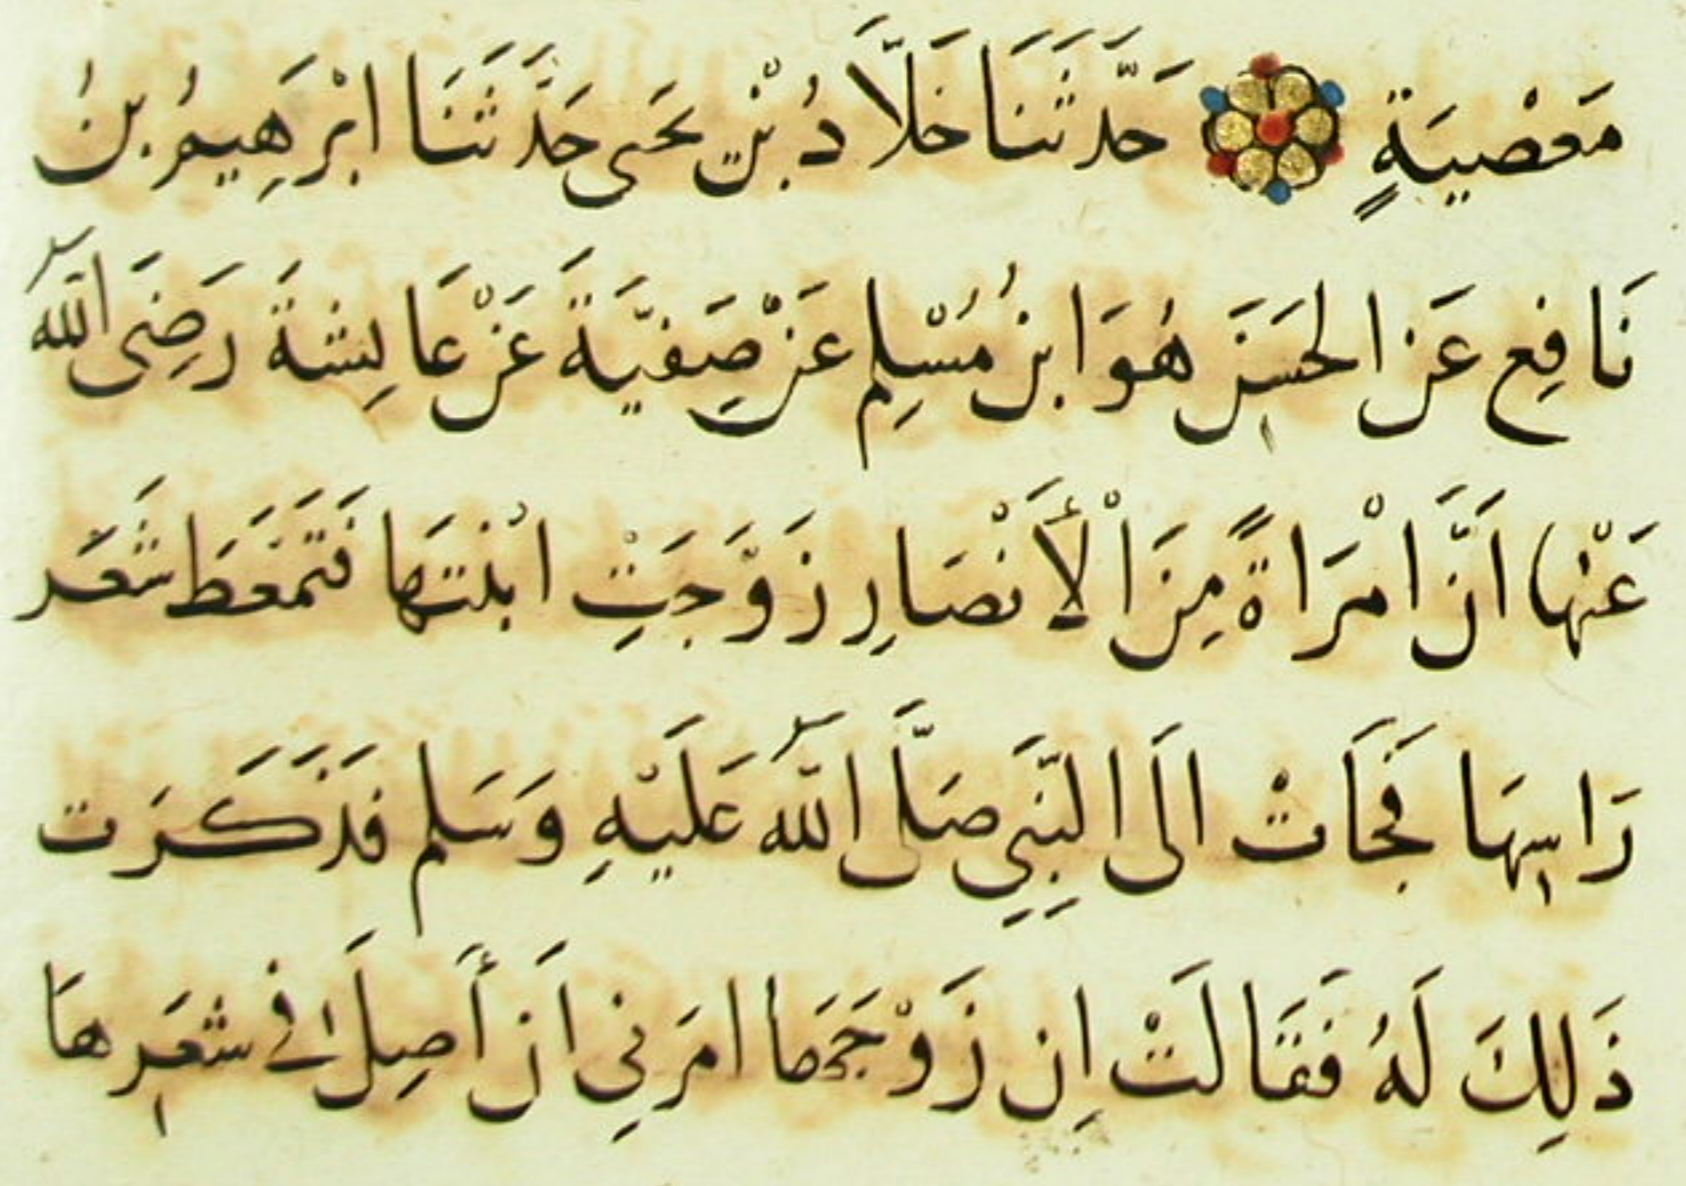 مَعْصِيَةٍ حَدَّثَنَا خَلَّادُ بْنُ يَحْيَى حَدَّثَنَا ابْرَهِيمُ بنُ
نَافِعٍ عَنِ الحَسَنِ هُوَ ابنُ مُسْلِمٍ عَنْ صَفِيَّةَ عَنْ عَايِشَةَ رَضِيَ اللّٰهُ
عَنْها اَنَّ امْرَاةً مِنَ الْأَنْصَارِ زَوَّجَتِ ابْنَتَهَا فَتَمَعَّطَ شَعَرُ
رَاسِهَا فَجَاَتْ اِلَى النَّبِيِّ صَلَّى اللّٰهُ عَلَيْهِ وَسَلَم فَذَكَرَت
ذَلِكَ لَهُ فَقَالَتْ اِن زَوْجَهَا امَرَنِي اَن أَصِلَ فِي شَعَرِهَا